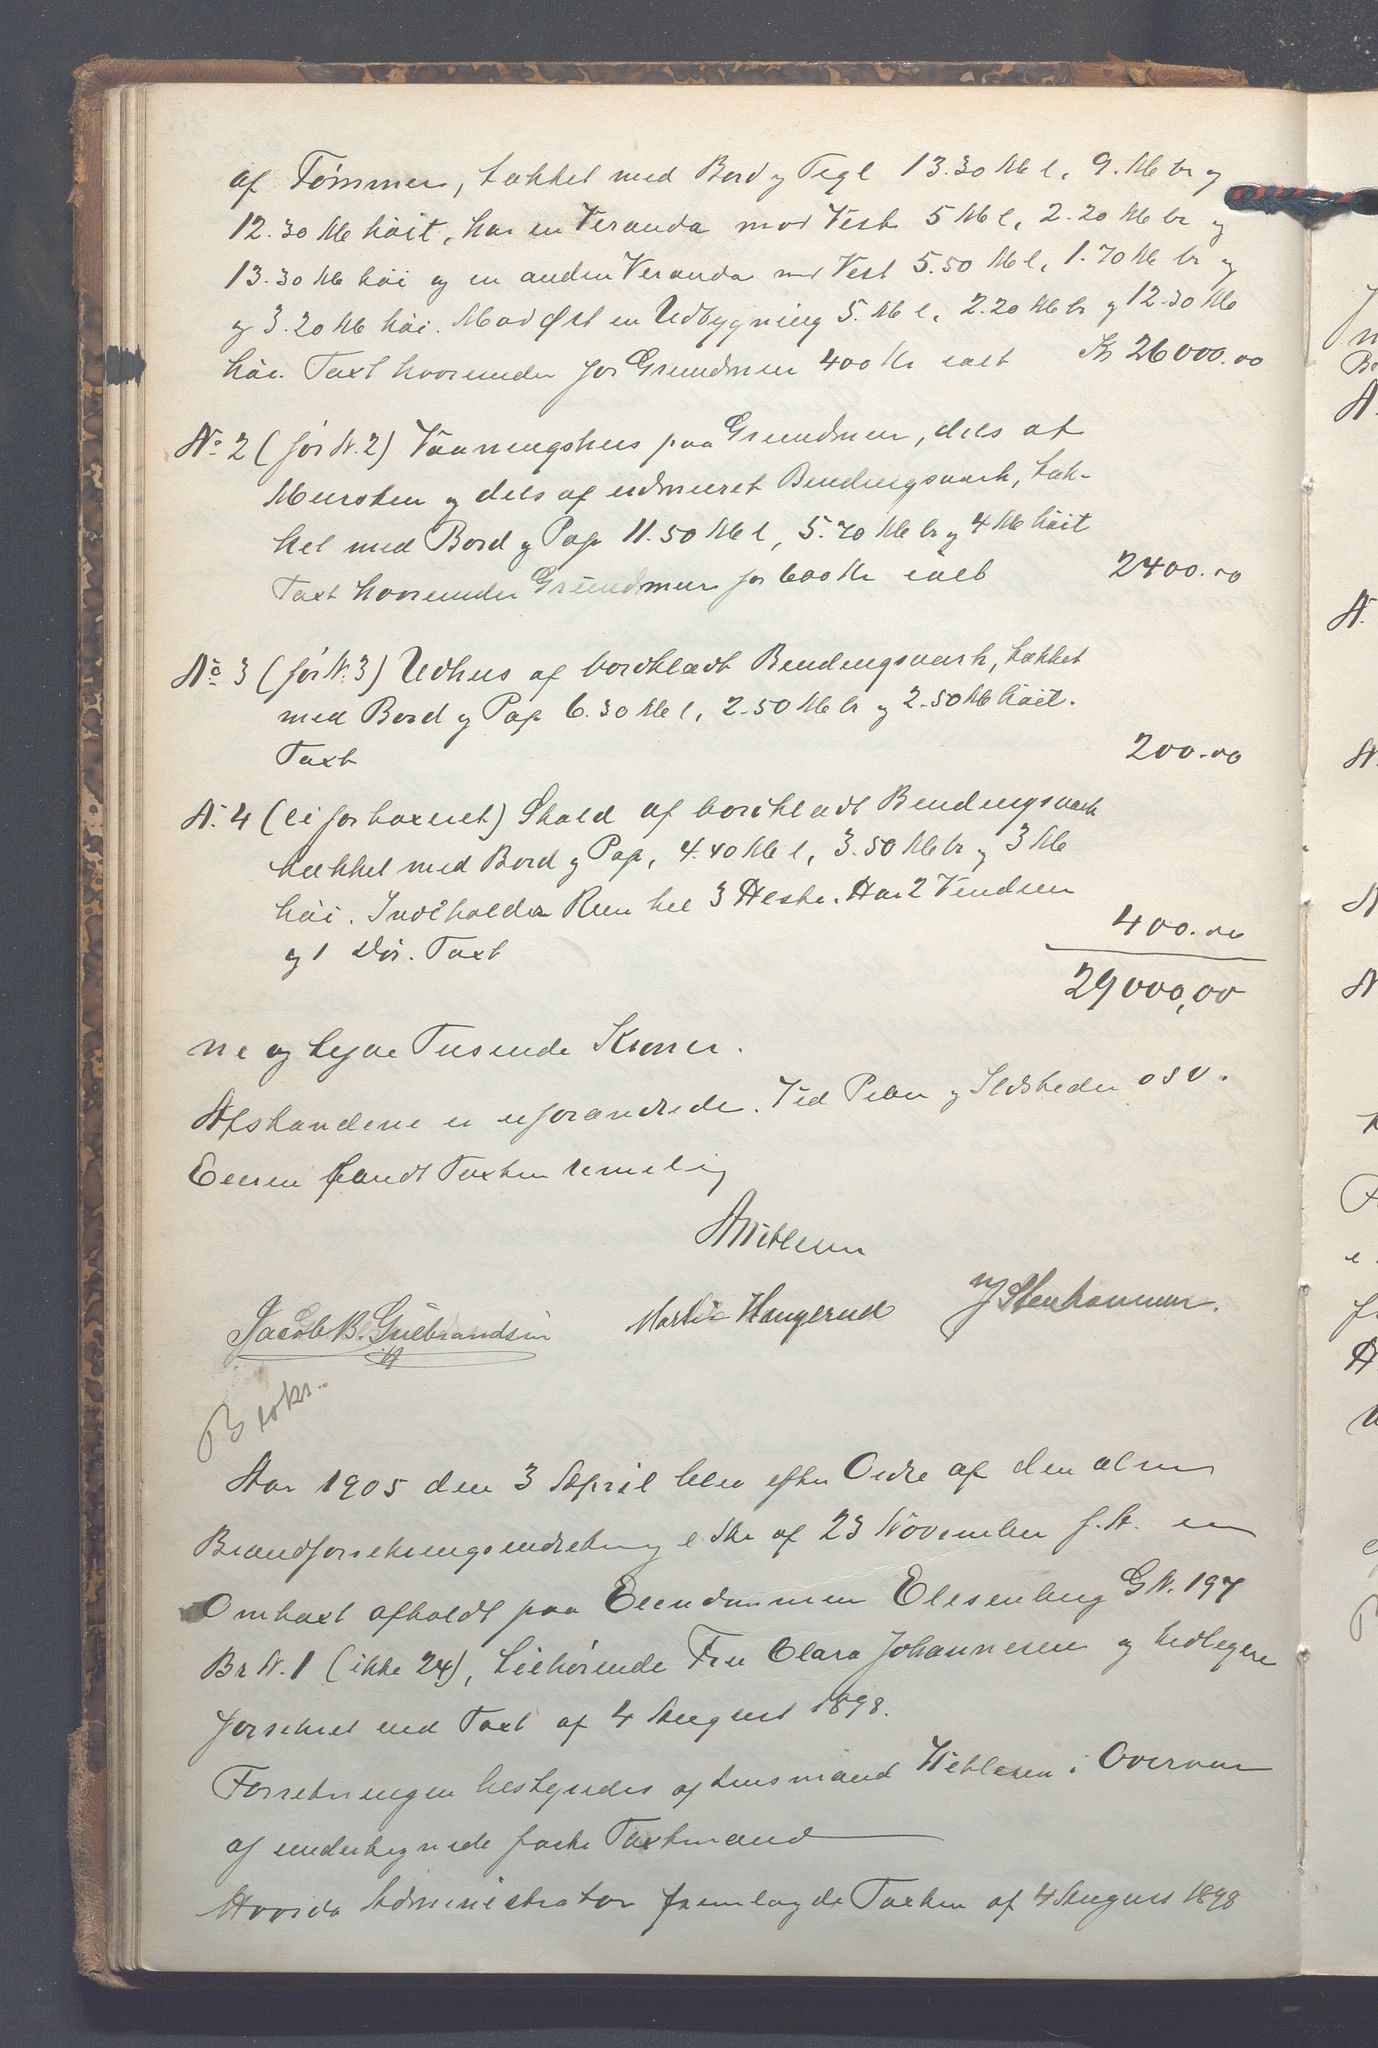 af Tømmer, tækket med Bord og Tegl 13.30 M l, 9. M br og
12.30 M høit, har en Veranda mod Vest 5 M l, 2.20 M br og
13.30 M høi og en anden Veranda mod Vest 5.50 M l, 1.70 M br og
og 3.20 M høi. Mod Øst en Udbygning 5. M l, 2.20 M br og 12.30 M
høi. Taxt hvorunder for Grundmur 400 Kr ialt Kr 26000.00
No 2 (før N. 2) Vaaningshus paa Grundmur, dels af
Mursten og dels af udmuret Bindingsværk, tæk-
ket med Bord og Pap 11.50 M l, 5.70 M br og 4 M høit
Taxt hvorunder Grundmur for 600 Kr ialt 2400.00
No 3 (før N. 3) Udhus af bordklædt Bindingsværk, tækket
med Bord og Pap 6.30 M l, 2.50 M br og 2.50 M høit.
Taxt 200.00
N. 4 (ei før taxeret) Stald af bordklædt Bindingsværk
tækket med Bord og Pap, 4.40 M l, 3.50 M br og 3 M
høi. Indeholder Rum til 3 Heste. Har 2 Vinduer
og 1 Dør. Taxt 400.00
29000,00
ni og tyve Tusende Kroner.
Afstandene er uforandrede. Ved Piber og Ildsteder osv.
Eieren fandt Taxten rimelig
AWiblesen
Jacob B. Gulbrandsen Martin Haugerud Stenhammer.
B
Aar 1905 den 3 April blev efter Ordre af den alm
Brandforsikringsindretning e Skr af 23 November f. A. en
Omtaxt afholdt paa Eiendommen Elisenberg G N. 197
Br N. 1 (ikke 24), tilhørende Fru Clara Johannesen og tidligere
forsikret ved Taxt af 4 August 1898.
Forretningen bestyredes af Lensmand Wiblesen i Overvær
af undertegnede faste Taxtmænd
Hvorda Administrator fremlagde Taxten af 4 August 1898